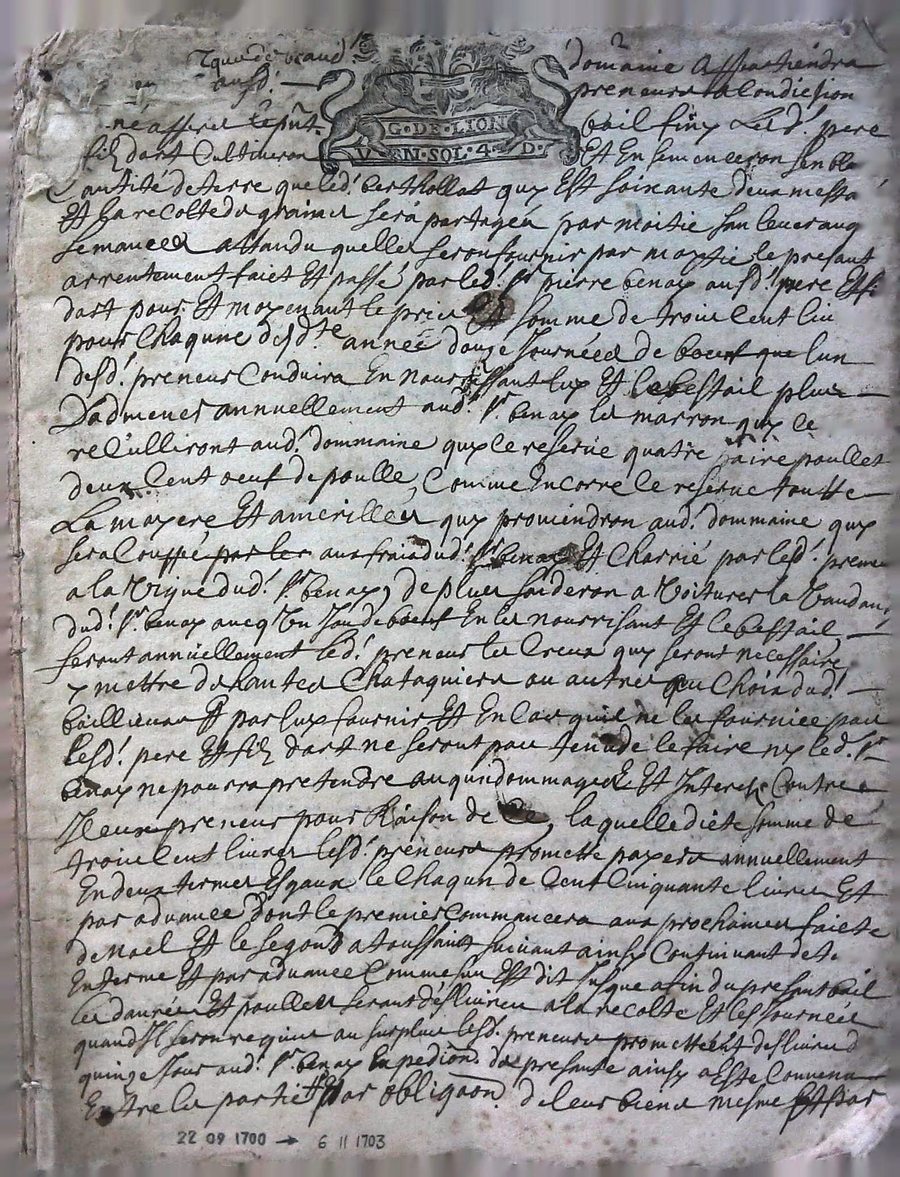 domaine appartiendra
preneurs a condicion
G·DE·LION
V EN·SOL·4·D·
bail finy lesd. pere
Et En semanceron sembla
Cantité de terre que led. berthollat quy Est soixante deux
Et la recolte de grains sera partagéa par moitie
semances attandu quelles seron fournir par moytie le presant
arrentement faict Et passé par led. Sr pierre benay ausd. pere Et fi
dart pour Et moyenant le prier Et somme de trois Cent liv
pour Chaqune desd.te année douze Journées de boeuf que lun
desd. preneur Conduira En nourrissant luy Et le bestail plus
Dadmener annuellement aud. Sr benay les marron quy se
reculliront aud. dommaine quy le reserve quatre paire poullet
deux Cent oeuf de poulle, Comme Encorre le reserve toutte
La mayere Et amerilles quy proviendron aud. dommaine quy
sera Couppé par les aux fraix dud. Sr benay Et Charrié par lesd. preneu
a la vigne dud. Sr benay, de plus ayderon a Voiturer la Vandan
dud. Sr benay aveq Un Jou de boeuf En les nourrisant Et le bestail
feront annuellement led. preneur les Creux quy seront necessaire
y mettre de hantes Chataquiers ou autres au Choix dud.
bailleur Et par luy fournir Et En Cas quil ne les fournice pas
lesd. pere Et filz dart ne seront pas tenu de le faire ny led. Sr
benay ne pourra pretendre auqun dommages Et Interetz Contre
Iceux preneur pour Raison de Ce, laquelle dicte somme de
trois Cent livres lesd. preneurs promette payera annuellement
En deux termes Esgaux le Chaqun de Cent Cinquante livres Et
par advance dont le premier Commancera aux prochaines faicte
de Noel Et le segond a toussaint suivant ainsy Continuant de te
En terme Et par advance Comme sus Est dit jusque a fin du presant bail
les danrées Et poulles seront deslivrées a la recolte Et les Journées
quand Il seron requis au surplus lesd. preneurs promettent deslivrer d
quinze Jours aud. Sr benay Expedion des presante ainsy a Esté Convenu
Entre les partie Et par obligaon de leur biens mesme Et par
22 09 1700 → 6 11 1703